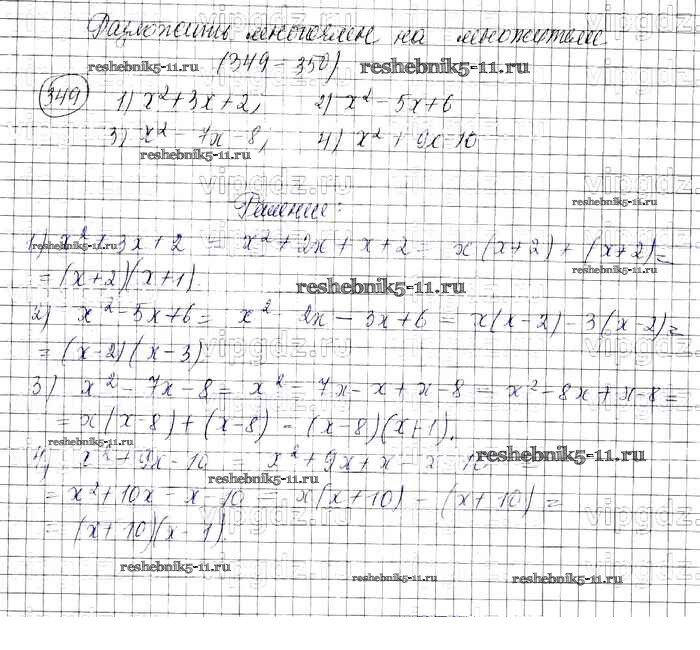 Разложить многочлен на множители
(349 – 350)
reshebnik5-11.ru reshebnik5-11.ru
349 1) x² + 3x + 2, 2) x² – 5x + 6
3) x² – 7x – 8, 4) x² + 9x – 10
reshebnik5-11.ru reshebnik5-11.ru
vipgdz.ru
reshebnik5-11.ru
Решение:
1) x² + 3x + 2 = x² + 2x + x + 2 = x(x+2) + (x+2) =
reshebnik5-11.ru reshebnik5-11.ru
= (x+2)(x+1)
reshebnik5-11.ru
2) x² – 5x + 6 = x² 2x – 3x + 6 = x(x–2) – 3(x–2) =
= (x–2)(x–3)
vipgdz.ru vipgdz.ru
3) x² – 7x – 8 = x² – 7x – x + x – 8 = x² – 8x + x – 8 =
= x(x–8) + (x–8) = (x–8)(x+1).
reshebnik5-11.ru reshebnik5-11.ru
4) x² + 9x – 10 x² + 9x + x – x 10
reshebnik5-11.ru
= x² + 10x – x – 10 = x(x+10) – (x+10) =
= (x+10)(x–1).
vipgdz.ru vipgdz.ru
reshebnik5-11.ru reshebnik5-11.ru reshebnik5-11.ru